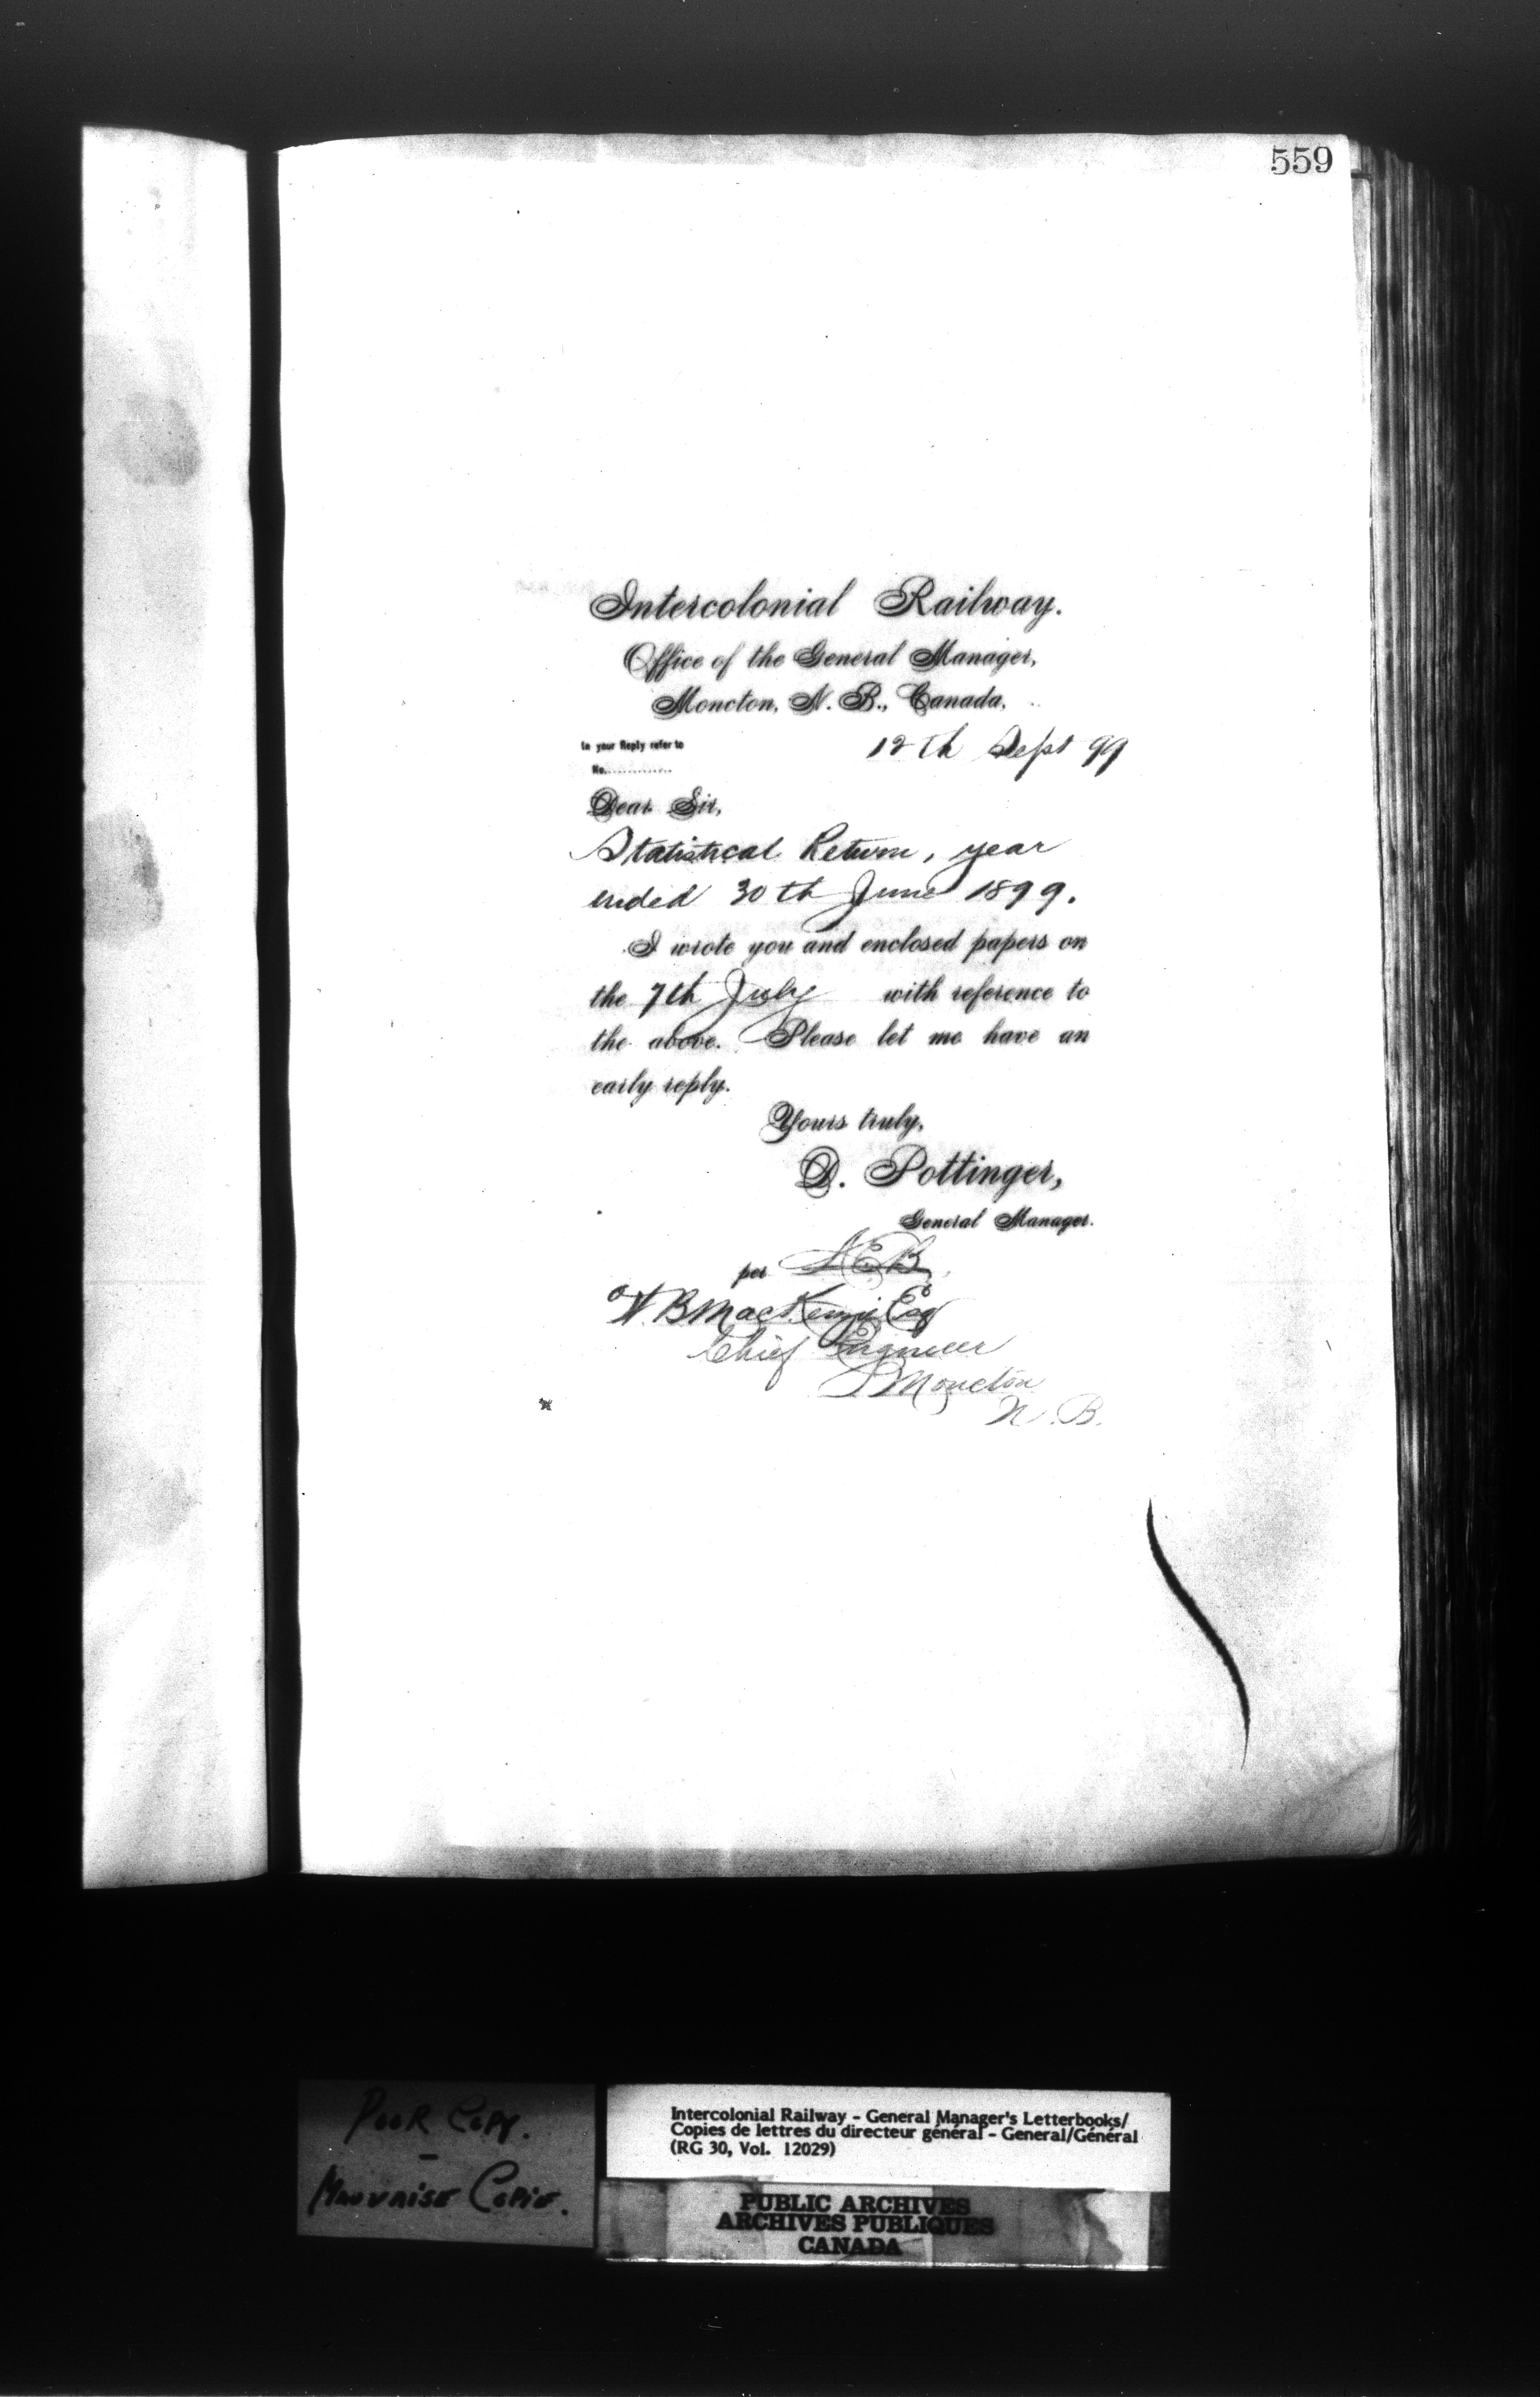 559
Intercolonial Railway.
Office of the General Manager,
Moncton, N. B., Canada,
In your Reply refer to
No.............
12th Sept 99
Dear Sir,
Statistical Return, year
ended 30th June 1899.
I wrote you and enclosed papers on
the 7th July with reference to
the above. Please let me have an
early reply.
Yours truly,
D. Pottinger,
General Manager.
per
W B MacKenzie Esq
Chief Engineer
Moncton
N. B.
POOR COPY.
-
MAUVAISE COPIE.
Intercolonial Railway - General Manager's Letterbooks/
Copies de lettres du directeur général - General/Général
(RG 30, Vol. 12029)
PUBLIC ARCHIVES
ARCHIVES PUBLIQUES
CANADA